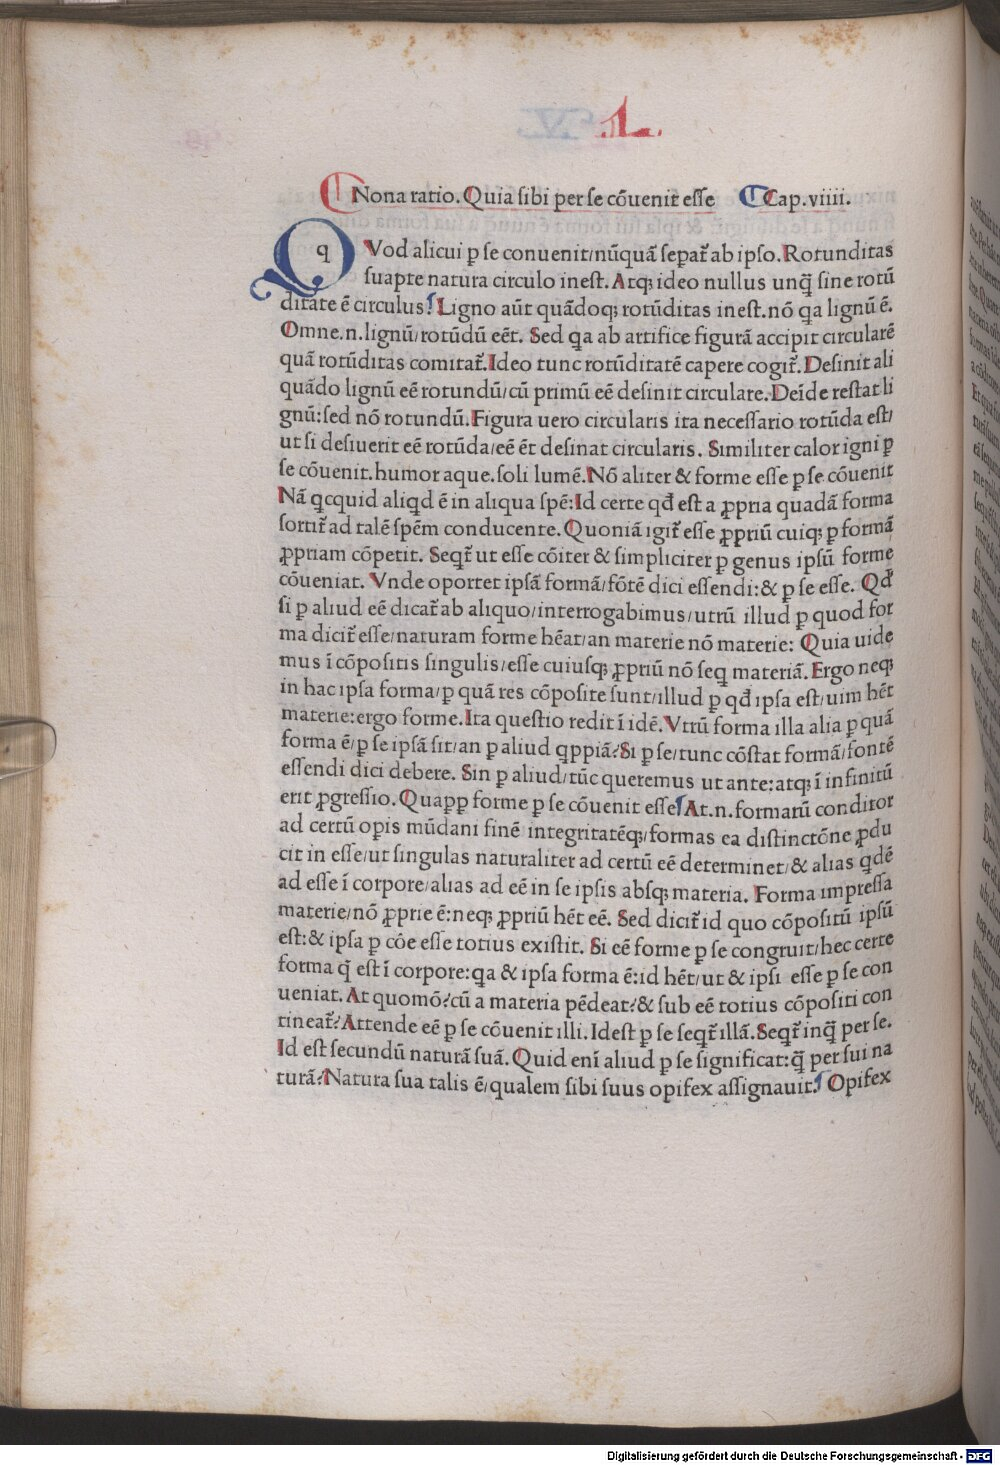 .L.
Nona ratio. Quia sibi per se cōuenit esse Cap. viiii.
q Vod alicui ꝑ se conuenit/nūquā sepaȓ ab ipso. Rotunditas
suapte natura circulo inest. Atqꝫ ideo nullus unꝗ̄ sine rotū
ditate ē circulus? Ligno aūt quādoqꝫ rotūditas inest. nō qa lignū ē.
Omne .n. lignū/rotūdū eēt. Sed qa ab artifice figurā accipit circularē
quā rotūditas comitaȓ. Ideo tunc rotūditatē capere cogiȓ. Desinit ali
quādo lignū eē rotundū/cū primū eē desinit circulare. Deīde restat li
gnū: sed nō rotundū. Figura uero circularis ita necessario rotūda est/
ut si desiuerit eē rotūda/eē ēt desinat circularis. Similiter calor igni ꝑ
se cōuenit. humor aque. soli lumē. Nō aliter & forme esse ꝑ se cōuenit
Nā qcquid aliqd ē in aliqua spē: Id certe qđ est a ꝓpria quadā forma
sortiȓ ad talē spēm conducente. Quoniā igiȓ esse ꝓpriū cuiqꝫ ꝑ formā
ꝓpriam cōpetit. Seqȓ ut esse cōiter & simpliciter ꝑ genus ipsū forme
cōueniat. Vnde oportet ipsā formā/fōtē dici essendi: & ꝑ se esse. Qđ
si ꝑ aliud eē dicaȓ ab aliquo/interrogabimus/utrū illud ꝑ quod for
ma diciȓ esse/naturam forme hēat/an materie nō materie: Quia uide
mus ī cōpositis singulis/esse cuiusqꝫ ꝓpriū nō seq materiā. Ergo neqꝫ
in hac ipsa forma/ꝑ quā res cōposite sunt/illud ꝑ qđ ipsa est/uim hēt
materie: ergo forme. Ita questio redit ī idē. Vtrū forma illa alia ꝑ quā
forma ē/ꝑ se ipsā sit/an ꝑ aliud qppiā? Si ꝑ se/tunc cōstat formā/fontē
essendi dici debere. Sin ꝑ aliud/tūc queremus ut ante: atqꝫ ī infinitū
erit ꝓgressio. Quaꝓꝑ forme ꝑ se cōuenit esse? At .n. formarū conditor
ad certū opis mūdani finē integritatēqꝫ/formas ea distinctōne ꝓdu
cit in esse/ut singulas naturaliter ad certū eē determinet/& alias qdē
ad esse ī corpore/alias ad eē in se ipsis absqꝫ materia. Forma impressa
materie/nō ꝓprie ē: neqꝫ ꝓpriū hēt eē. Sed diciȓ id quo cōpositū ipsū
est: & ipsa ꝑ cōe esse totius existit. Si eē forme ꝑ se congruit/hec certe
forma ꝗ̄ est ī corpore: qa & ipsa forma ē: id hēt/ut & ipsi esse ꝑ se con
ueniat. At quomō? cū a materia pēdeat? & sub eē totius cōpositi con
tineaȓ? Attende eē ꝑ se cōuenit illi. Idest ꝑ se seqȓ illā. Seqȓ inꝗ̄ per se.
Id est secundū naturā suā. Quid enī aliud ꝑ se significat: ꝗ̄ per sui na
turā? Natura sua talis ē/qualem sibi suus opifex assignauit? Opifex
Digitalisierung gefördert durch die Deutsche Forschungsgemeinschaft - DFG